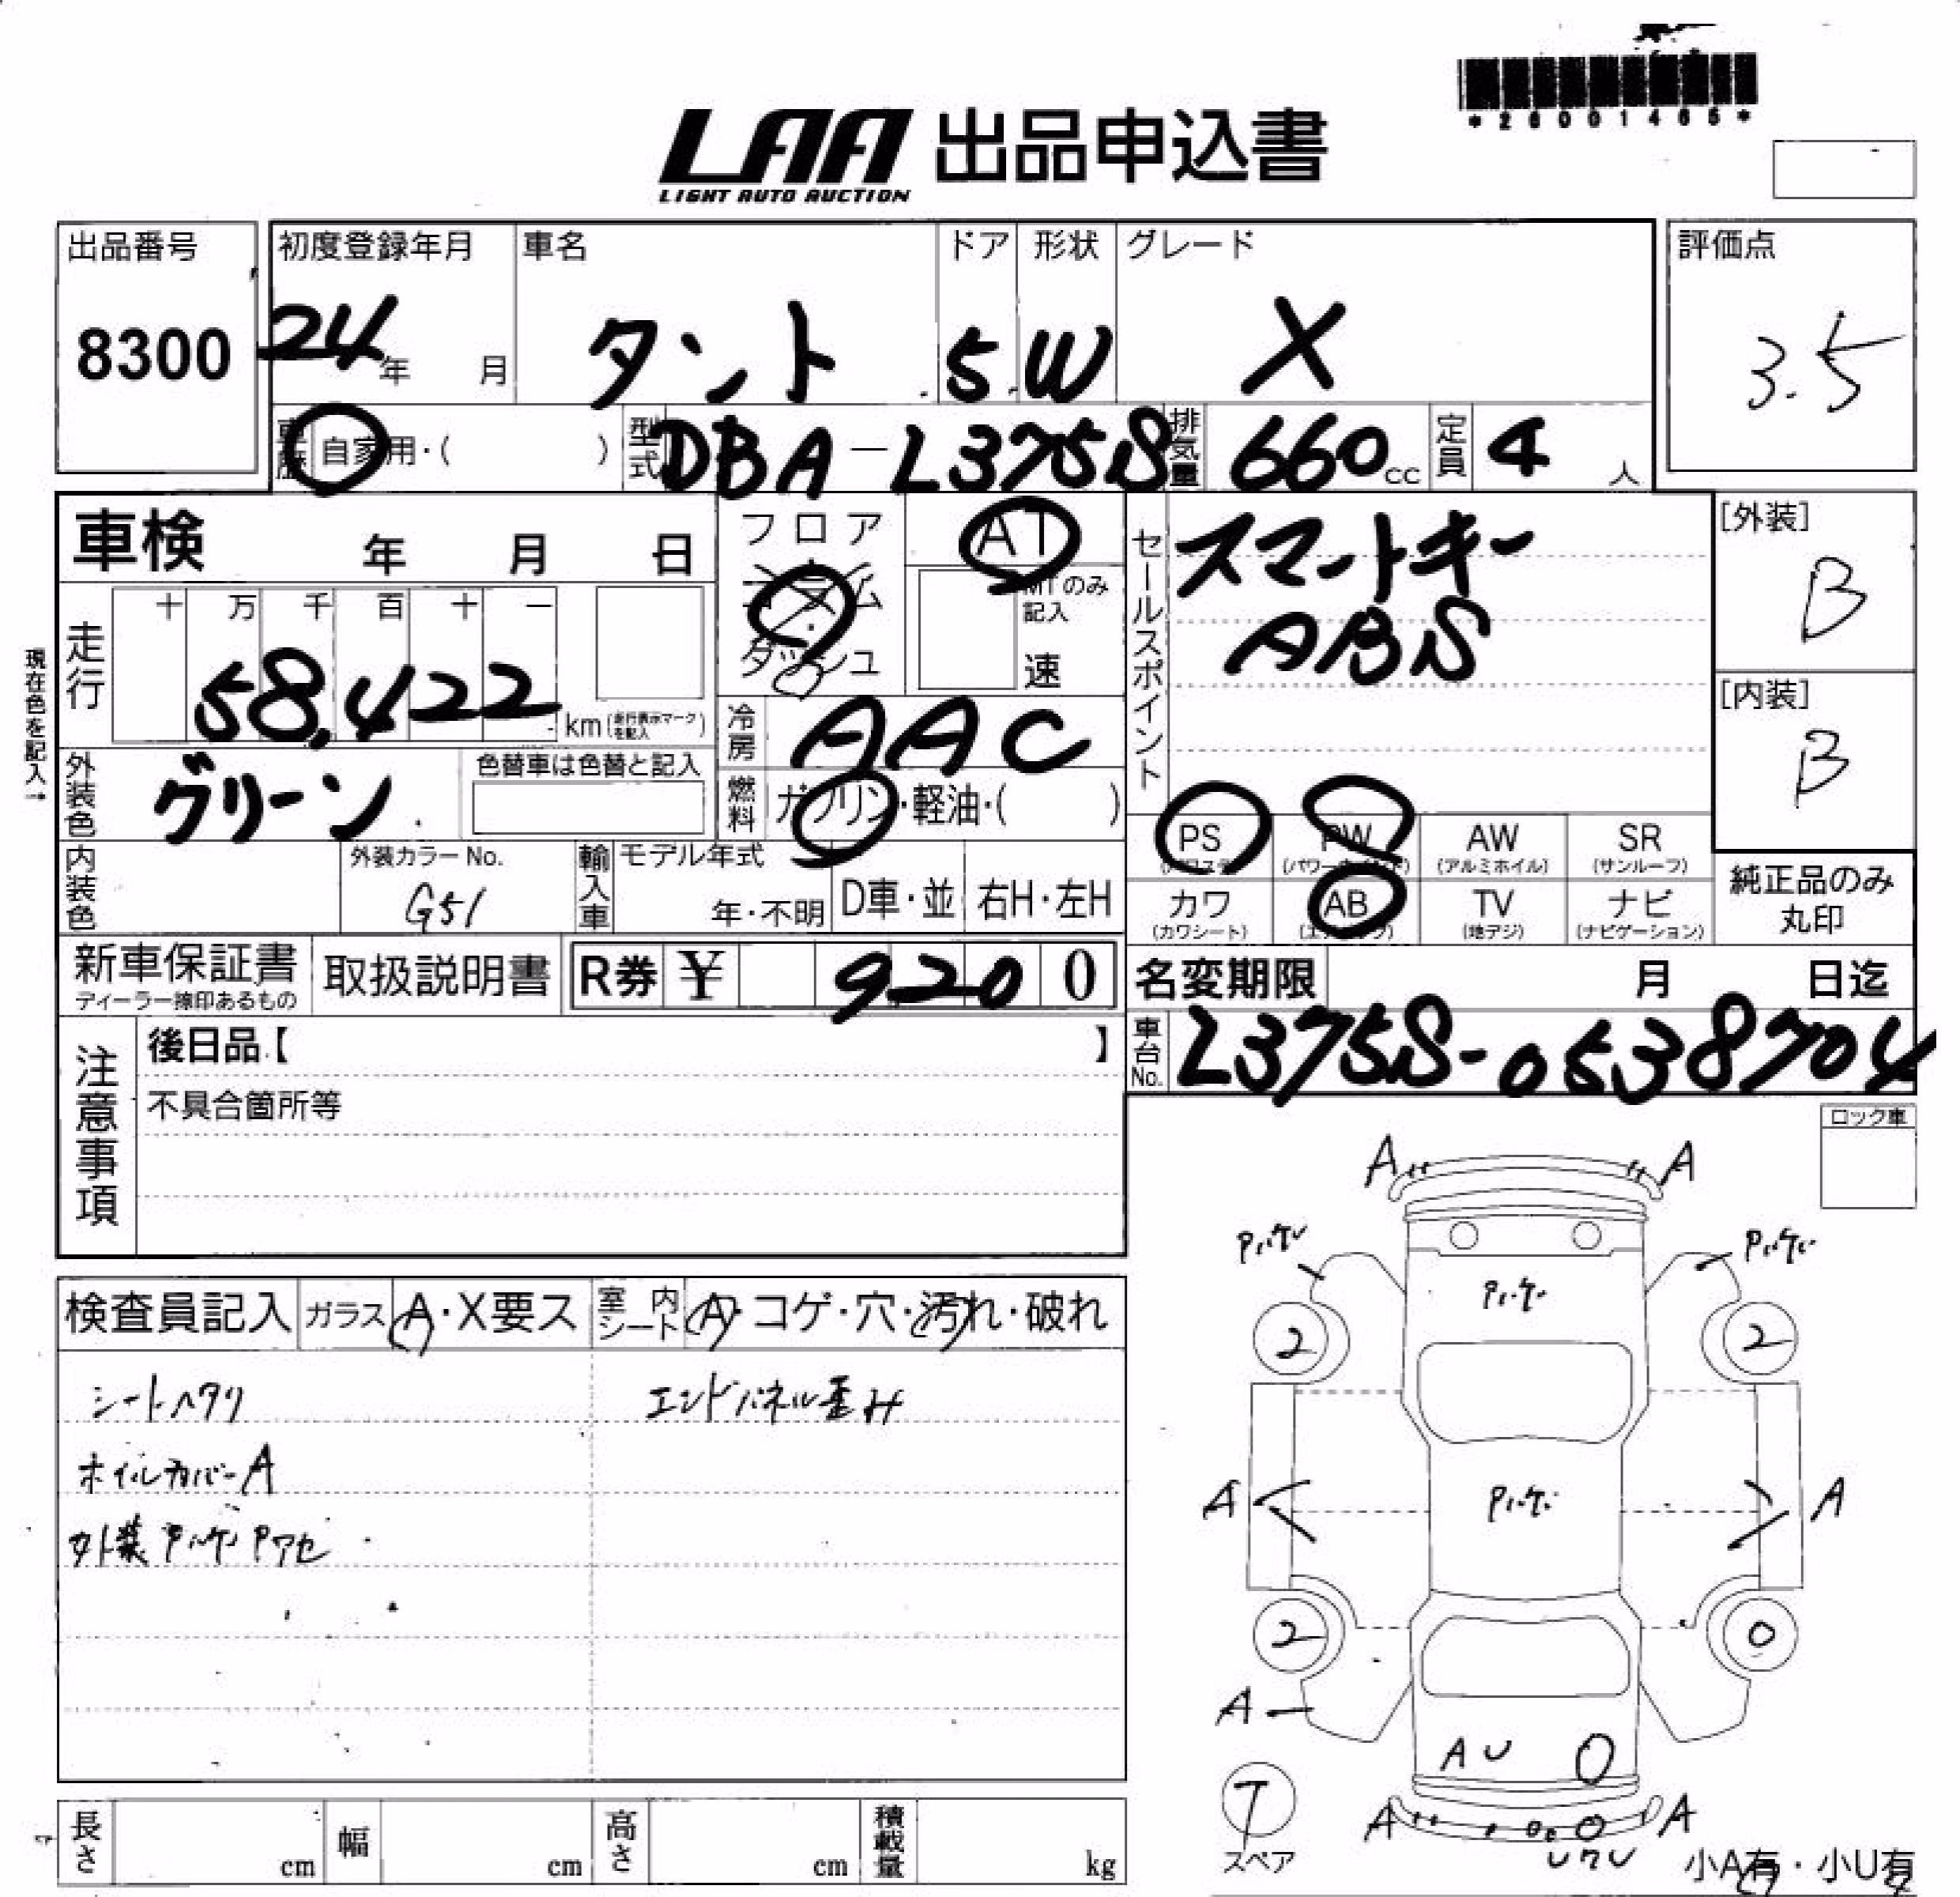 *26001465*
LAA 出品申込書
LIGHT AUTO AUCTION
出品番号
8300
初度登録年月
24年 月
車名
タント
ドア
5
形状
W
グレード
X
評価点
3.5
車歴 自家用・( )
型式 DBA-L375S
排気量 660cc
定員 4人
車検 年 月 日
フロア
コラム
ダッシュ
AT
MTのみ記入
速
セールスポイント
スマートキー
ABS
[外装]
B
[内装]
B
現在色を記入→
走行
十 万 千 百 十 一
58,422 km(走行表示マークを記入)
冷房 AAC
外装色 グリーン
色替車は色替と記入
燃料 ガソリン・軽油・( )
PS PW AW SR
(パワーウインドウ) (アルミホイル) (サンルーフ)
カワ AB TV ナビ
(カワシート) (エアバッグ) (地デジ) (ナビゲーション)
純正品のみ
丸印
内装色
外装カラーNo.
G51
輸入車
モデル年式
年・不明
D車・並
右H・左H
新車保証書
ディーラー捺印あるもの
取扱説明書
R券 ¥ 9200
名変期限 月 日迄
車台No. L375S-0538704
注意事項
後日品【 】
不具合箇所等
ロック車
検査員記入 ガラス A・X要ス 室内シート A・コゲ・穴・汚れ・破れ
シートヘタリ エンドパネル歪み
ホイルカバーA
外装Pハゲ Pアセ
A A
Pハゲ Pハゲ
Pハゲ
2 2
A Pハゲ A
2 0
A
AU
T
スペア
A A
小A有・小U有
長さ cm 幅 cm 高さ cm 積載量 kg